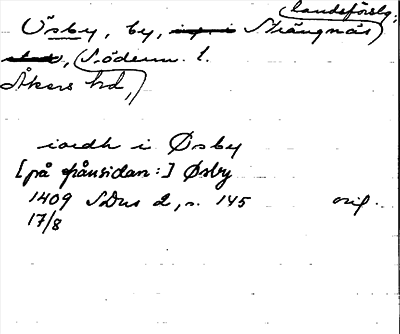 landsförsg;
Ösby, by, i Strängnäs
stad, Söderm. l.
Åkers hd,
iordh i Øsby
[på frånsidan:] Øsby
1409 SDns 2, s. 145 orig.
17/8